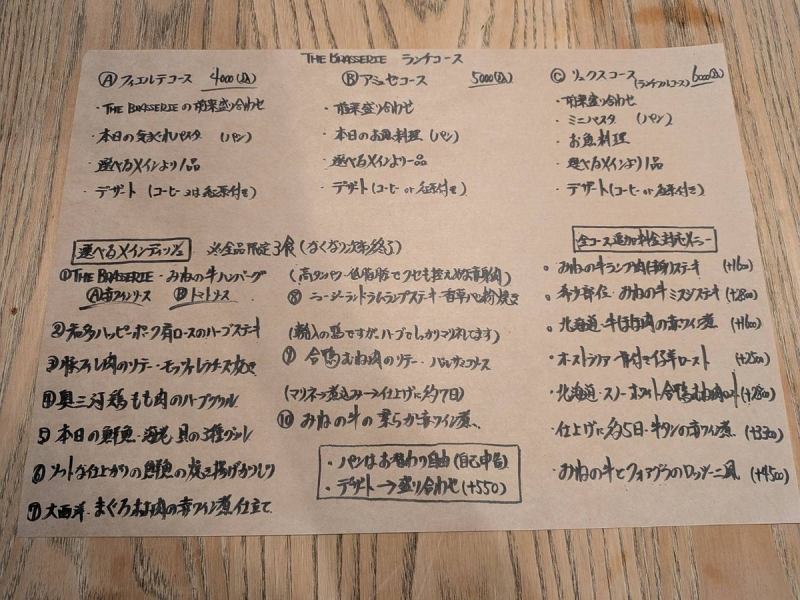 THE BRASSERIE ランチコース
Ⓐ フィエルテコース 4000(込)
・THE BRASSERIEの前菜盛り合わせ
・本日の気まぐれパスタ (パン)
・選べるメインより1品
・デザート (コーヒー又は紅茶付き)
Ⓑ アミュゼコース 5000(込)
・前菜盛り合わせ
・本日のお魚料理 (パン)
・選べるメインより一品
・デザート (コーヒー or 紅茶付き)
Ⓒ リュクスコース (ランチフルコース) 6000(込)
・前菜盛り合わせ
・ミニパスタ (パン)
・お魚料理
・選べるメインより1品
・デザート (コーヒー or 紅茶付き)
選べるメインディッシュ ※全品限定3食 (なくなり次第終了)
①THE BRASSERIE・みねの牛ハンバーグ
Ⓐ赤ワインソース Ⓑトマトソース
②知多ハッピーポーク肩ロースのハーブステキ
③豚フィレ肉のソテー・モッツァレラチーズ焼き
④奥三河鶏もも肉のハーブグリル
⑤本日の鮮魚・海老・貝の3種グリル
⑥ソフトな仕上がりの鮮魚の焼き揚げガーリック
⑦大西洋・まぐろほほ肉の赤ワイン煮仕立て
(高タンパク・低脂肪でクセも控えめな赤身肉)
⑧ ニュージーランドラムランプステキ・香草パン粉焼き
(輸入の鴨ですが、ハーブでしっかりマリネしてます)
⑨ 合鴨むね肉のソテー・バルサミコソース
(マリネ→煮込み→仕上げに約7日)
⑩ みねの牛の柔らか赤ワイン煮
・パンはお替わり自由 (自己申告)
・デザート→盛り合わせ (+550)
全コース追加料金対応メニュー
・みねの牛ランプ肉(赤身)ステキ (+1600)
・希少部位・みねの牛ミスジステキ (+2800)
・北海道・牛ほほ肉の赤ワイン煮 (+1600)
・オーストラリア・骨付き仔羊ロースト (+2500)
・北海道・スノーホワイト合鴨むね肉ロースト (+2800)
・仕上げに約5日・牛タンの赤ワイン煮 (+3300)
・みねの牛とフォアグラのロッシーニ風 (+4500)